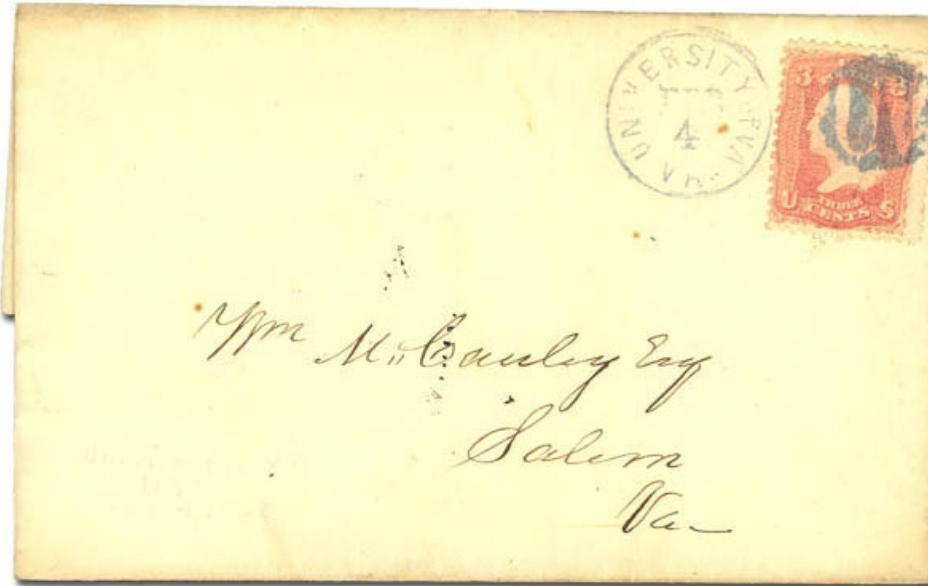 UNIVERSITY OF VA.
4
VA.
3 3
U THREE S
CENTS
Wm M,,Cauley Esq
Salem
Va